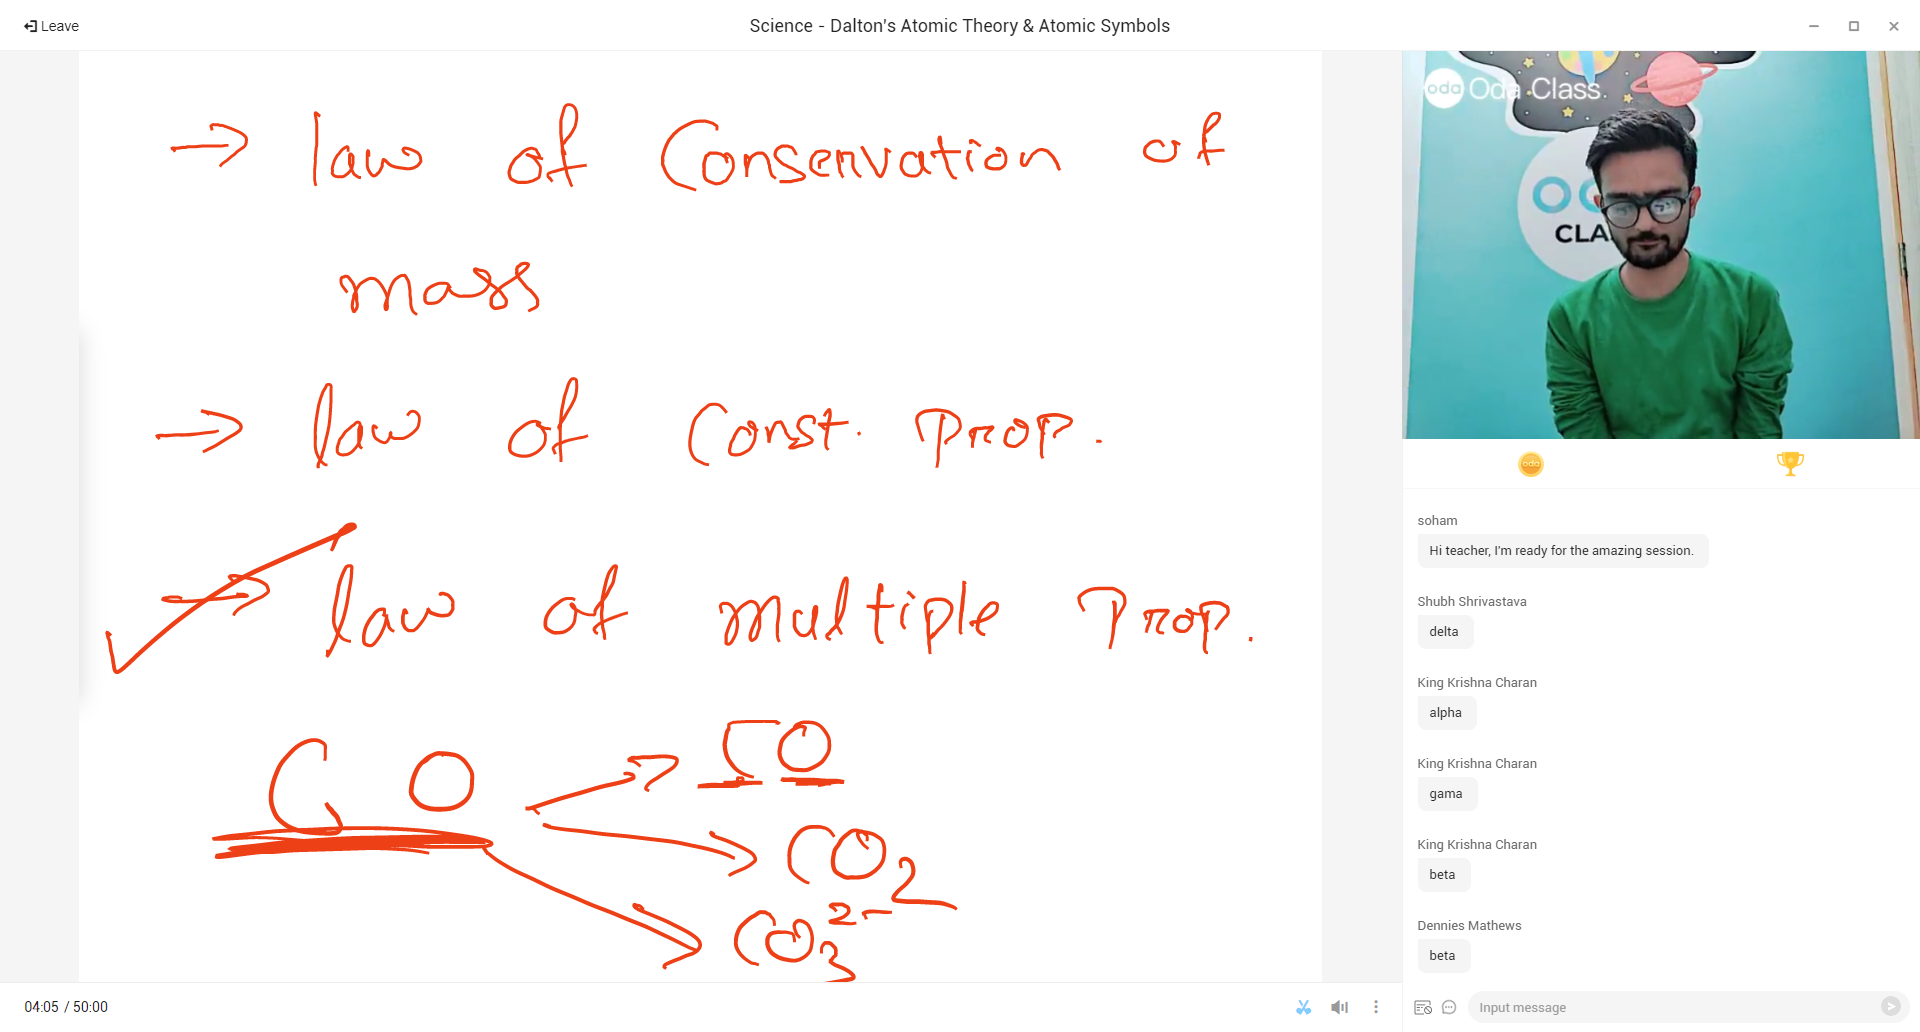 Leave
Science - Dalton's Atomic Theory & Atomic Symbols
→ law of Conservation of
mass
→ law of Const. Prop.
→ law of multiple Prop.
C, O
CO
CO2
CO3 2-
04:05 / 50:00
oda Oda Class
CLA
oda
soham
Hi teacher, I'm ready for the amazing session.
Shubh Shrivastava
delta
King Krishna Charan
alpha
King Krishna Charan
gama
King Krishna Charan
beta
Dennies Mathews
beta
Input message